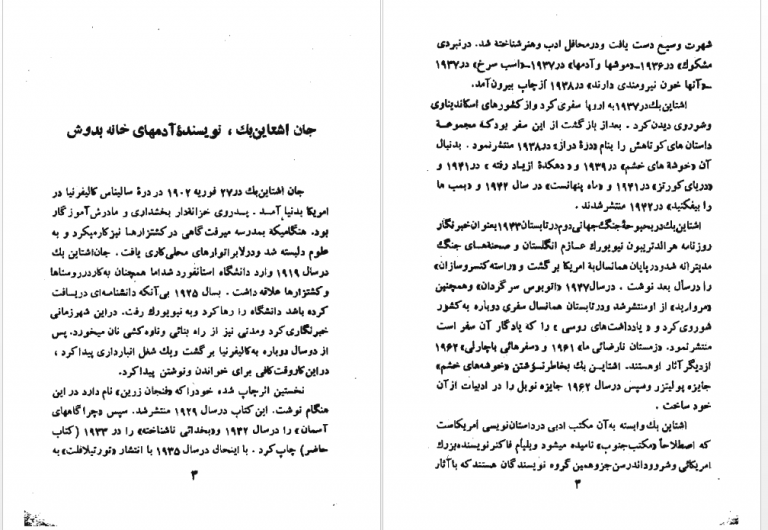 جان اشتاین‌بك ، نویسندهٔ آدمهای خانه بدوش
جان اشتاین‌بك در ۲۷ فوریه ۱۹۰۲ در درهٔ سالیناس کالیفرنیا در
امریکا بدنیا آمد . پدروی خزانه‌دار بخشداری و مادرش آموزگار
بود. هنگامیکه بمدرسه میرفت گاهی در کشتزارها نیز کارمیکرد و به
علوم دلبسته شد و در لابراتوارهای محلی کاری یافت . جان‌اشتاین بك
درسال ۱۹۱۹ وارد دانشگاه استانفورد شداما همچنان به‌کاردرروستاها
و کشتزارها علاقه داشت . بسال ۱۹۲۵ بی‌آنکه دانشنامه‌ای دریافت
کرده باشد دانشگاه را رها کرد و به نیویورك رفت. دراین شهرزمانی
خبرنگاری کرد ومدتی نیز از راه بنائی وناوه‌کشی نان میخورد. پس
از دوسال دوباره به‌کالیفرنیا برگشت ویك شغل انبارداری پیدا کرد ،
دراین‌کاروقت‌کافی برای خواندن ونوشتن پیدا کرد.
نخستین اثرچاپ شده خودراکه «فنجان زرین» نام دارد در این
هنگام نوشت. این کتاب درسال ۱۹۲۹ منتشرشد. سپس «چراگاههای
آسمان» را درسال ۱۹۳۲ و«بخدائی ناشناخته» را در ۱۹۳۳ (کتاب
حاضر) چاپ کرد . با اینحال درسال ۱۹۳۵ با انتشار «تورتیلافلت» به
۳
شهرت وسیع دست یافت ودرمحافل ادب وهنرشناخته شد. درنبردی
مشکوك» در۱۹۳۶ـ«موشها وآدمها» در۱۹۳۷ـ«اسب سرخ» در۱۹۳۷
ـ«آنها خون نیرومندی دارند» در۱۹۳۸ ازچاپ بیرون‌آمد.
اشتاین‌بك در۱۹۳۷به اروپا سفری کرد وازکشورهای اسکاندیناوی
وشوروی دیدن کرد . بعداز باز گشت از این سفر بود که مجموعهٔ
داستان های‌کوتاهش را بنام «درهٔ دراز» در۱۹۳۸ منتشر نمود . بدنبال
آن «خوشه های خشم» در۱۹۳۹ و « دهکدهٔ ازیاد رفته » در۱۹۴۱ و
«دریای‌کورتز» در۱۹۴۱ و «ماه پنهانست» در سال ۱۹۴۲ و «بمب ها
را بیفکنید» در۱۹۴۲ منتشرشدند .
اشتاین‌بك دربحبوحهٔ‌جنگ جهانی‌دوم درتابستان۱۹۴۳بعنوان خبرنگار
روزنامه هرالدتریبون نیویورك عازم انگلستان و صحنه‌های جنگ
مدیترانه شدودرپایان همانسال‌به امریکا برگشت و «راسته کنسروسازان»
را درسال بعد نوشت . درسال۱۹۴۷ «اتوبوس سرگردان» وهمچنین
«مروارید» از اومنتشرشد ودرتابستان همانسال سفری دوباره به‌کشور
شوروی کرد و « یادداشت‌های روسی » را که یادگار آن سفر است
منتشرنمود. «زمستان نارضائی ما» ۱۹۶۱ و «سفرهائی باچارلی» ۱۹۶۲
ازدیگرآثار اوهستند. اشتاین بك بخاطرنوشتن «خوشه‌های خشم»
جایزه پولیتزر وسپس درسال ۱۹۶۲ جایزه نوبل را در ادبیات ازآن
خود ساخت .
اشتاین بك وابسته به‌آن مکتب ادبی درداستان‌نویسی امریکاست
که اصطلاحاً «مکتب‌جنوب» نامیده میشود ویلیام فاکنر نویسنده‌بزرك
امریکائی وشروود اندرسن جزوهمین گروه نویسندگان هستندکه باآثار
۳